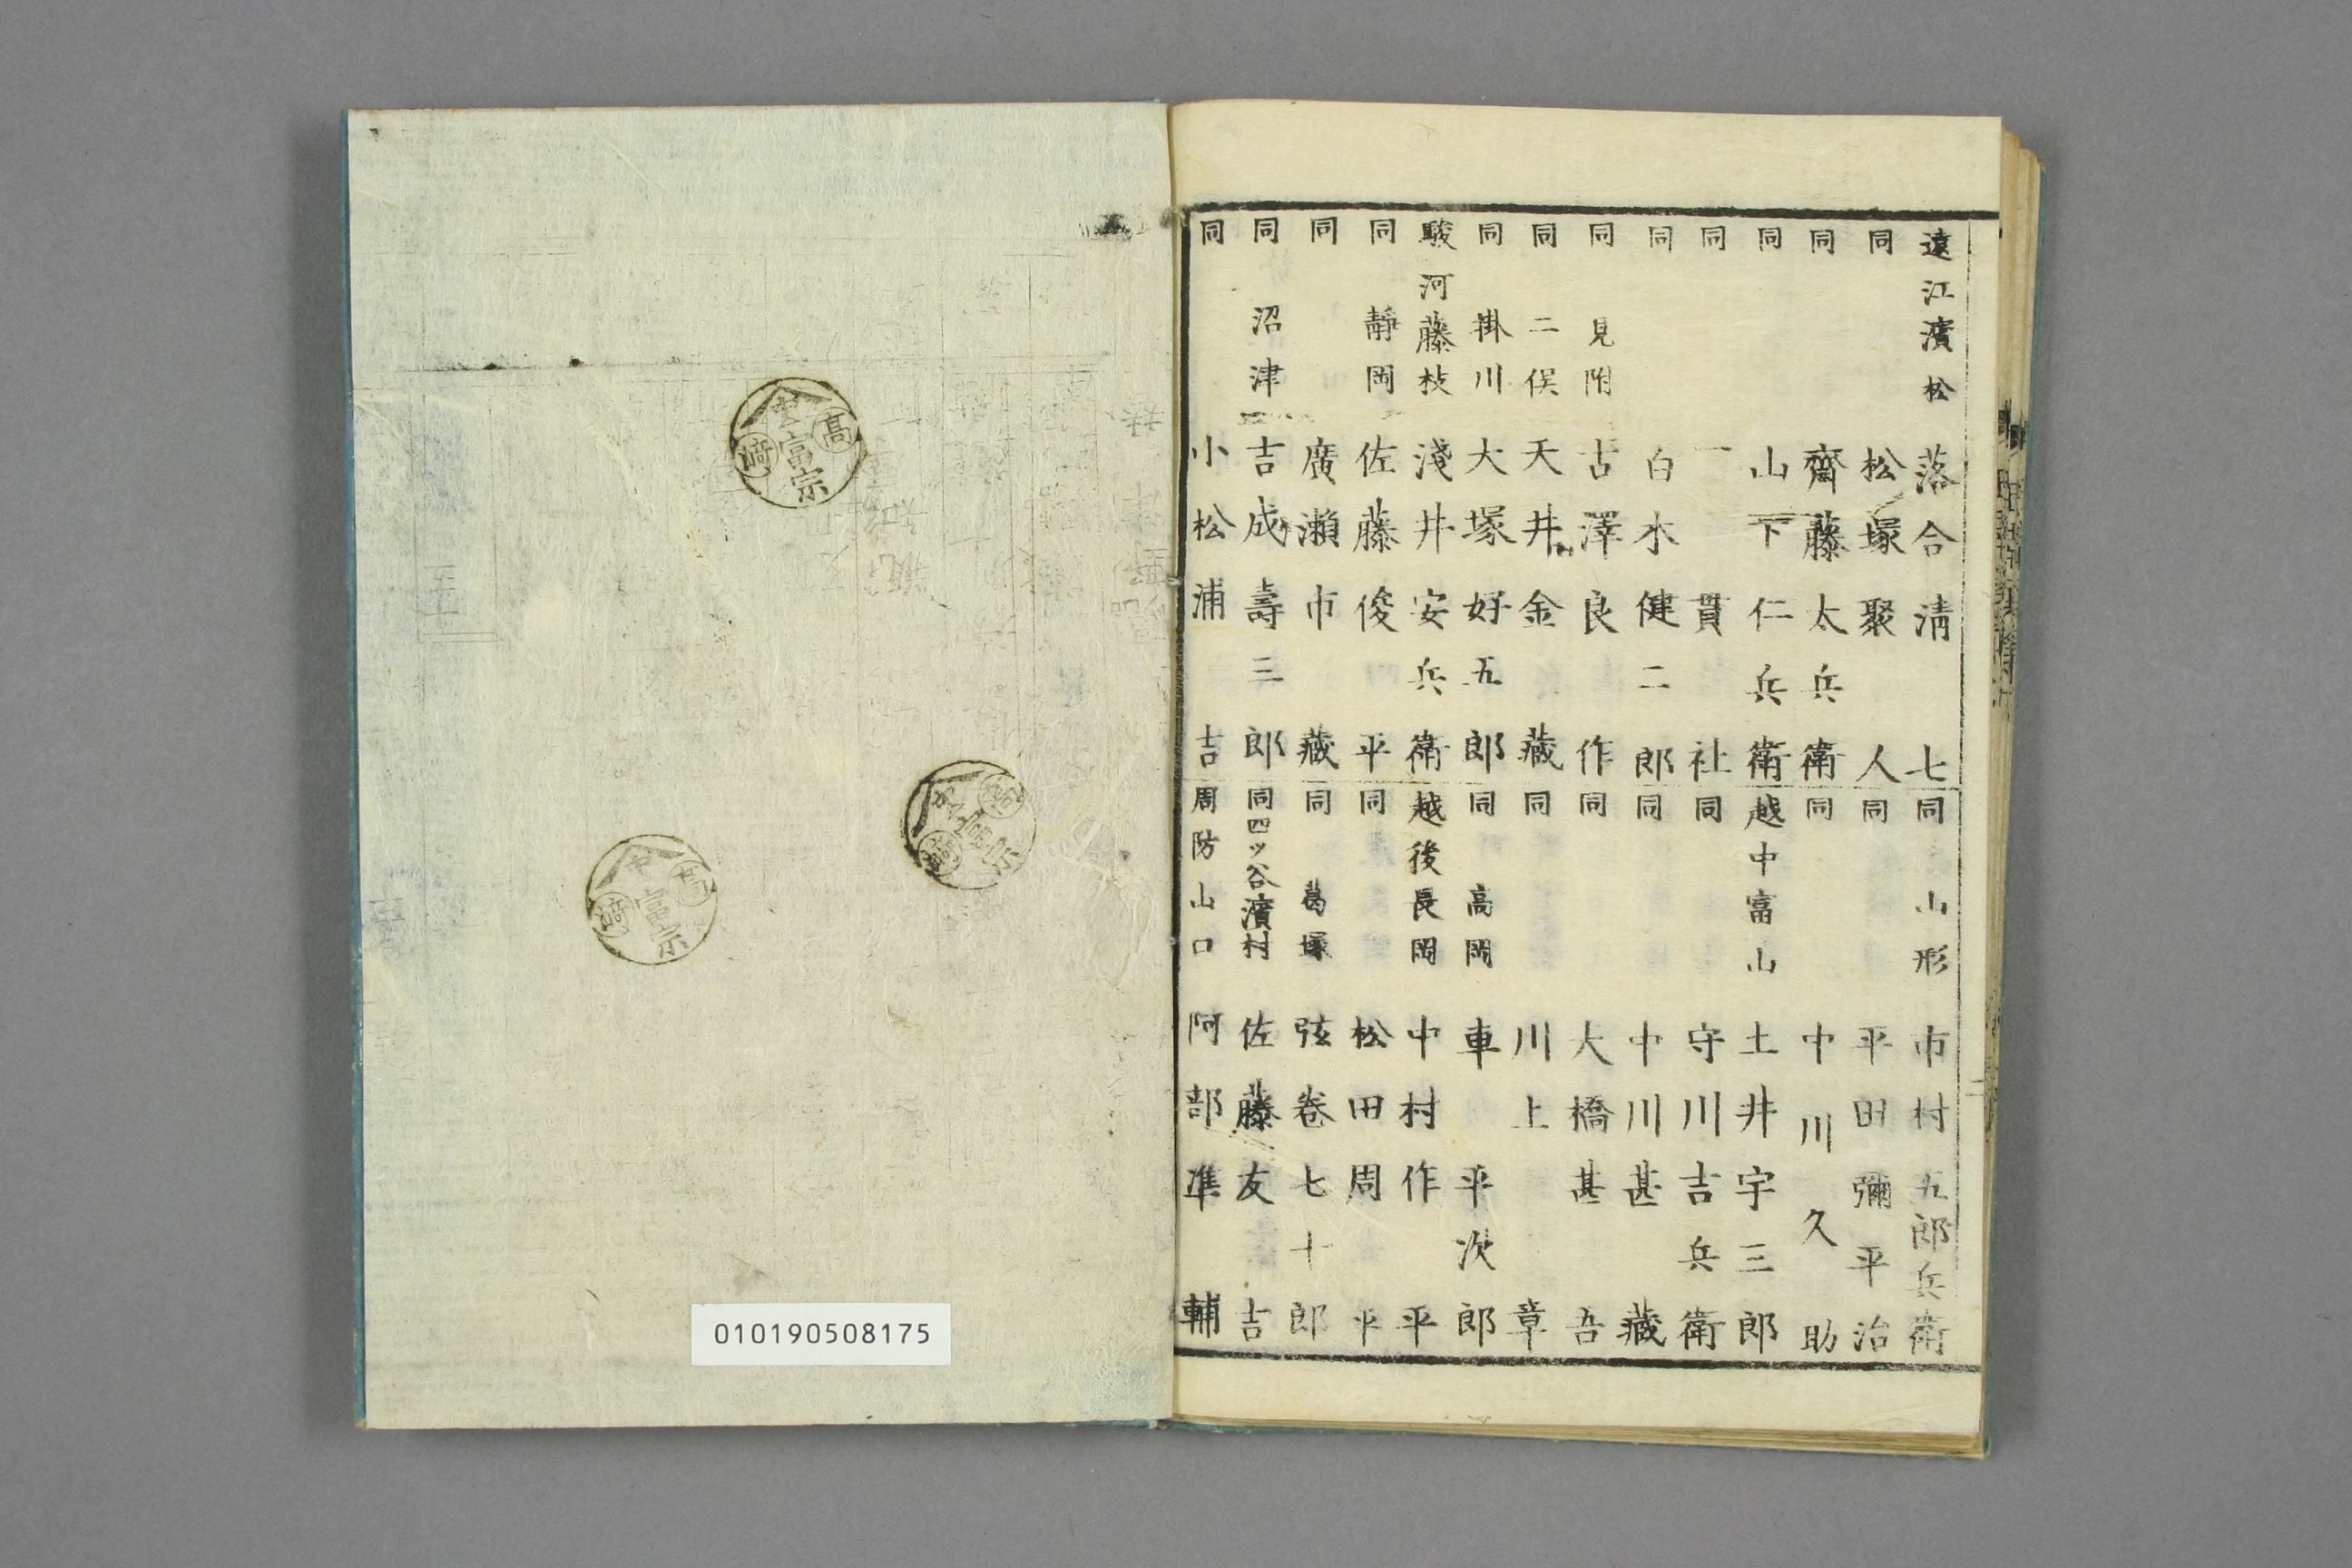 遠江濱松 落合清七
同 松塚聚人
同 齋藤太兵衛
同 山下仁兵衛
同 一貫社
同 白木健二郎
同 見附 古澤良作
同 二俣 天井金藏
同 掛川 大塚好五郎
駿河藤枝 淺井安兵衛
同 靜岡 佐藤俊平
同 廣瀬市藏
同 沼津 吉成壽三郎
同 小松浦吉
同 山形 市村五郎兵衛
同 平田彌平治
同 中川久助
越中富山 土井宇三郎
同 守川吉兵衛
同 中川甚藏
同 大橋甚吾
同 川上章
同 高岡 車平次郎
越後長岡 中村作平
同 松田周平
同 葛塚 弦卷七十郎
同四ッ谷濱村 佐藤友吉
周防山口 阿部準輔
高
富宗
崎
富宗
崎
富宗
崎
010190508175